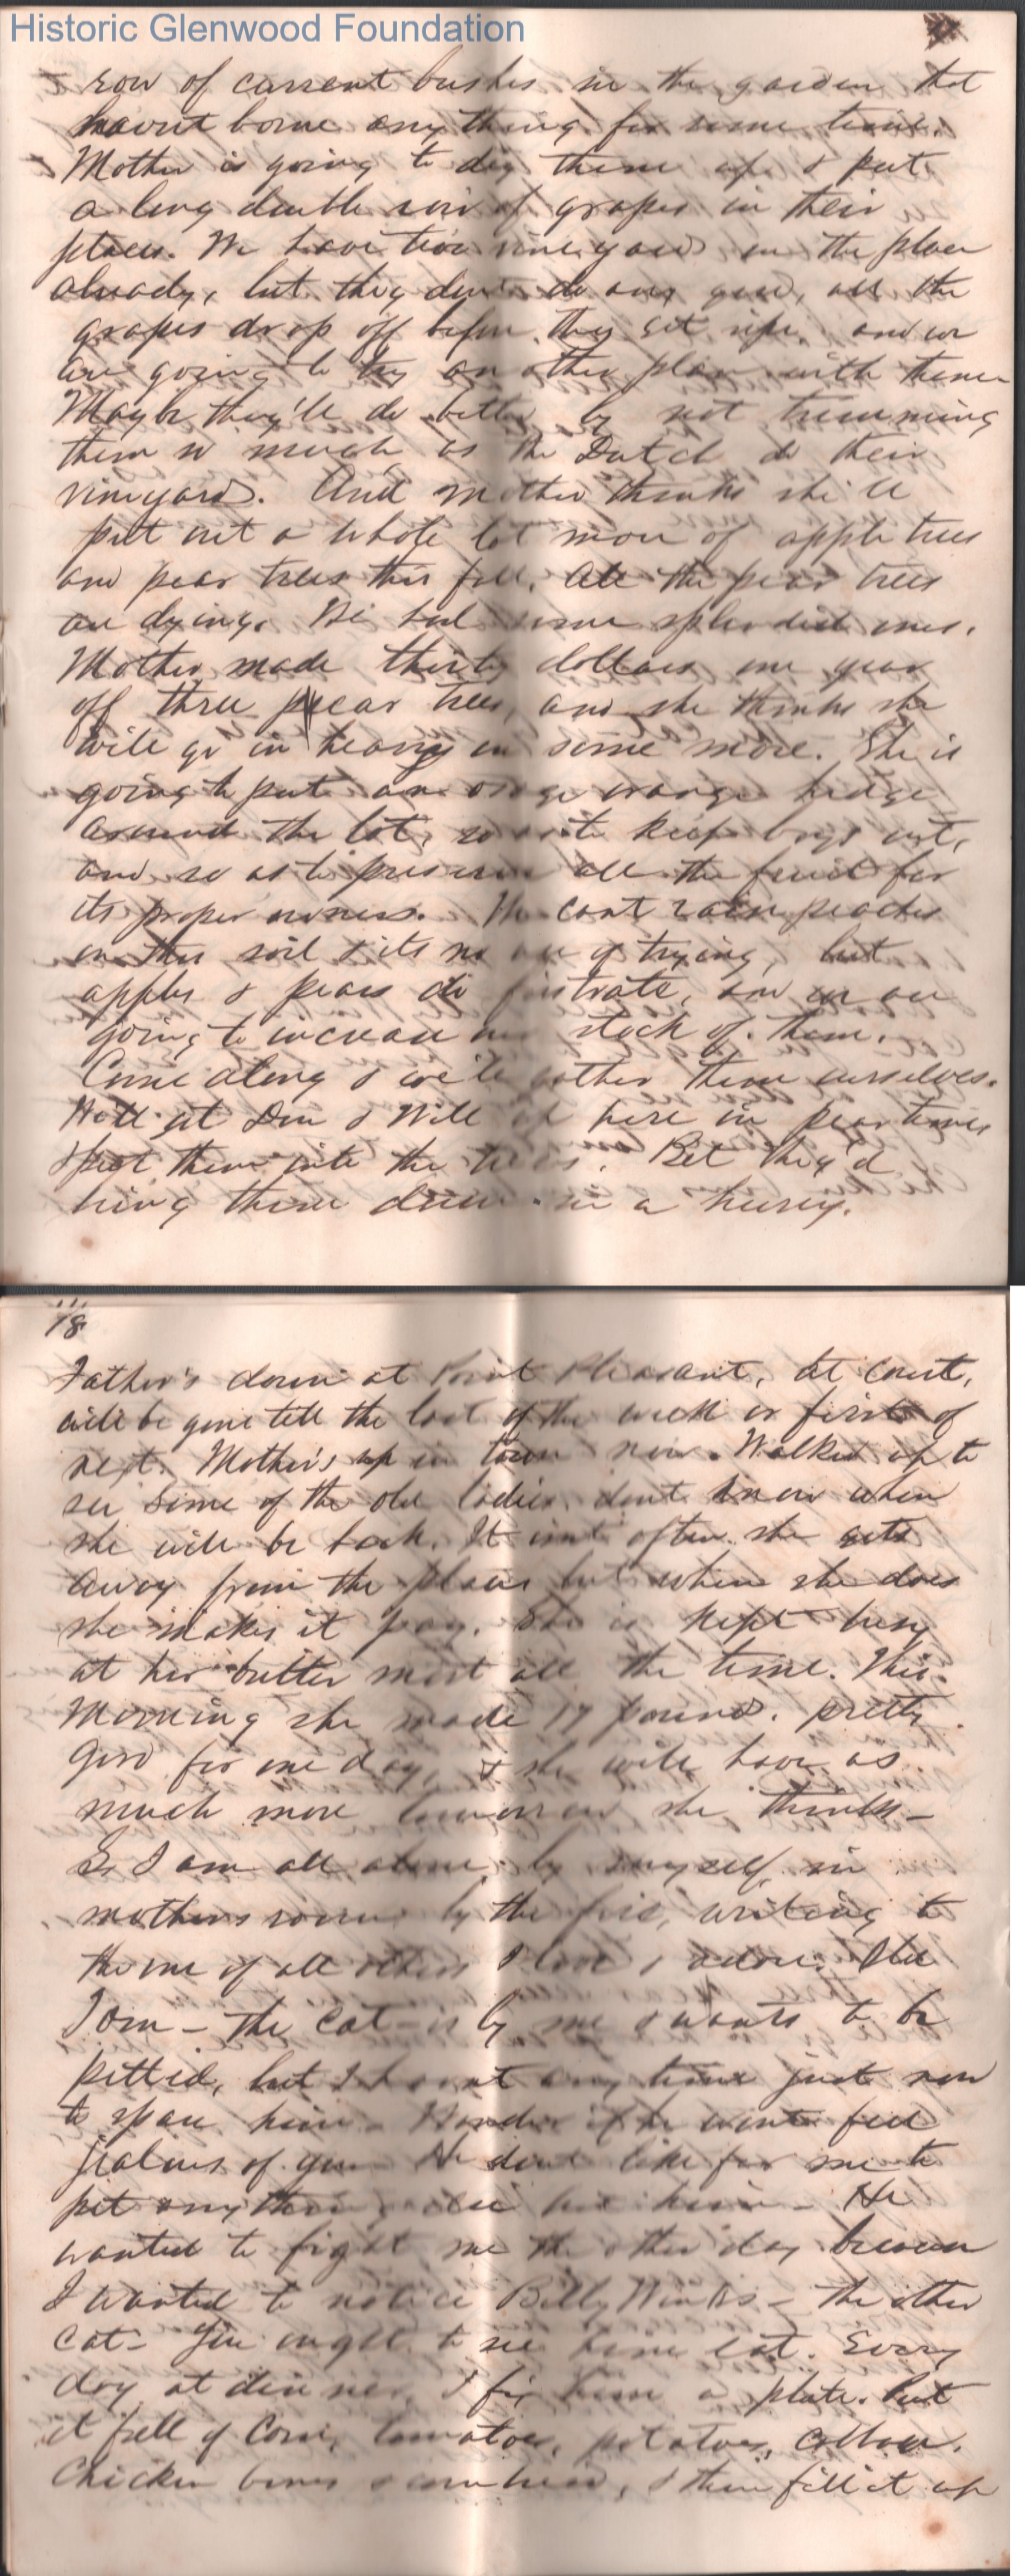 Historic Glenwood Foundation
row of current bushes in the garden that
havent borne any thing for some time.
Mother is going to dig them up & put
a long double row of grapes in their
places. We have two vineyards on the place
already, but they dont do any good, all the
grapes drop off before they get ripe, and we
are going to try another plan with them
Maybe they'll do better by not trimming
them so much as the Dutch do their
vineyards. And mother thinks she'll
put out a whole lot more of apple trees
and pear trees this fall. All the pear trees
are dying. We had some splendid ones.
Mother made thirty dollars one year
off three pear trees, and she thinks she
will go in heavy on some more. She is
going to put an osage orange hedge
around the lot, so as to keep boys out,
and so as to preserve all the fruit for
its proper owners. We cant raise peaches
on this soil & its no use of trying, but
apples & pears do, and we are
going to increase our stock of them.
Come along & we'll gather them ourselves.
We'll get & Will here in pear times
& put them into the trees. Bet they'd
bring them down in a hurry.
18
Father's down at Point Pleasant, at Court,
will be gone till the last of the week or first of
next. Mother's up in town now. Walked up to
see some of the old ladies, dont know when
she will be back. It isnt often she gets
away from the place but when she does
she makes it pay. She is kept busy
at her butter most all the time. This
Morning she made 17 pounds. pretty
good for one day, & she will have as
much more tomorrow she thinks –
So I am all alone by myself in
mothers room by the fire, writing to
the one of all others I love & adore. Old
Tom – the cat – is by me & wants to be
petted, but I havent any time just now
to spare him. Wonder if he wont feel
jealous of you. He dont like for me to
pet anything else but him – He
wanted to fight me the other day because
I wanted to notice Billy Winks – the other
cat – You ought to see him eat. Every
day at dinner I fix him a plate. Put
it full of Corn, tomatoes, potatoes,
Chicken bones & cornbread, & then fill it up